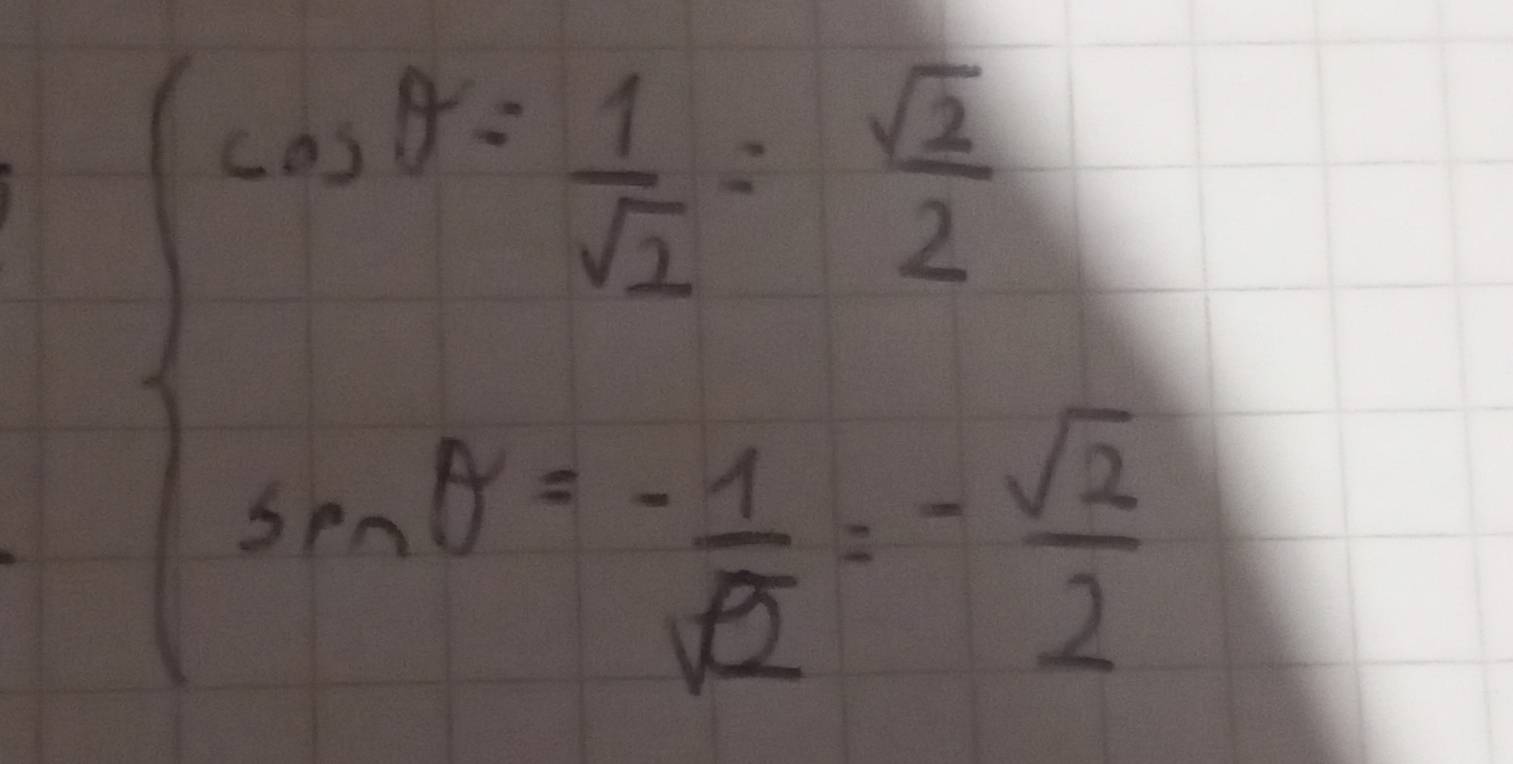 cos θ = 1/√2 = √2/2
sin θ = - 1/√2 = - √2/2